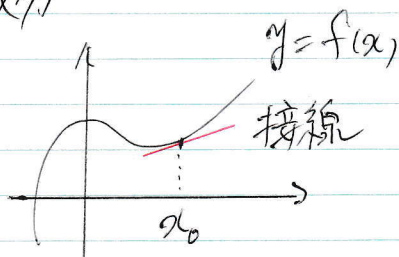 y = f(x)
接線
x₀